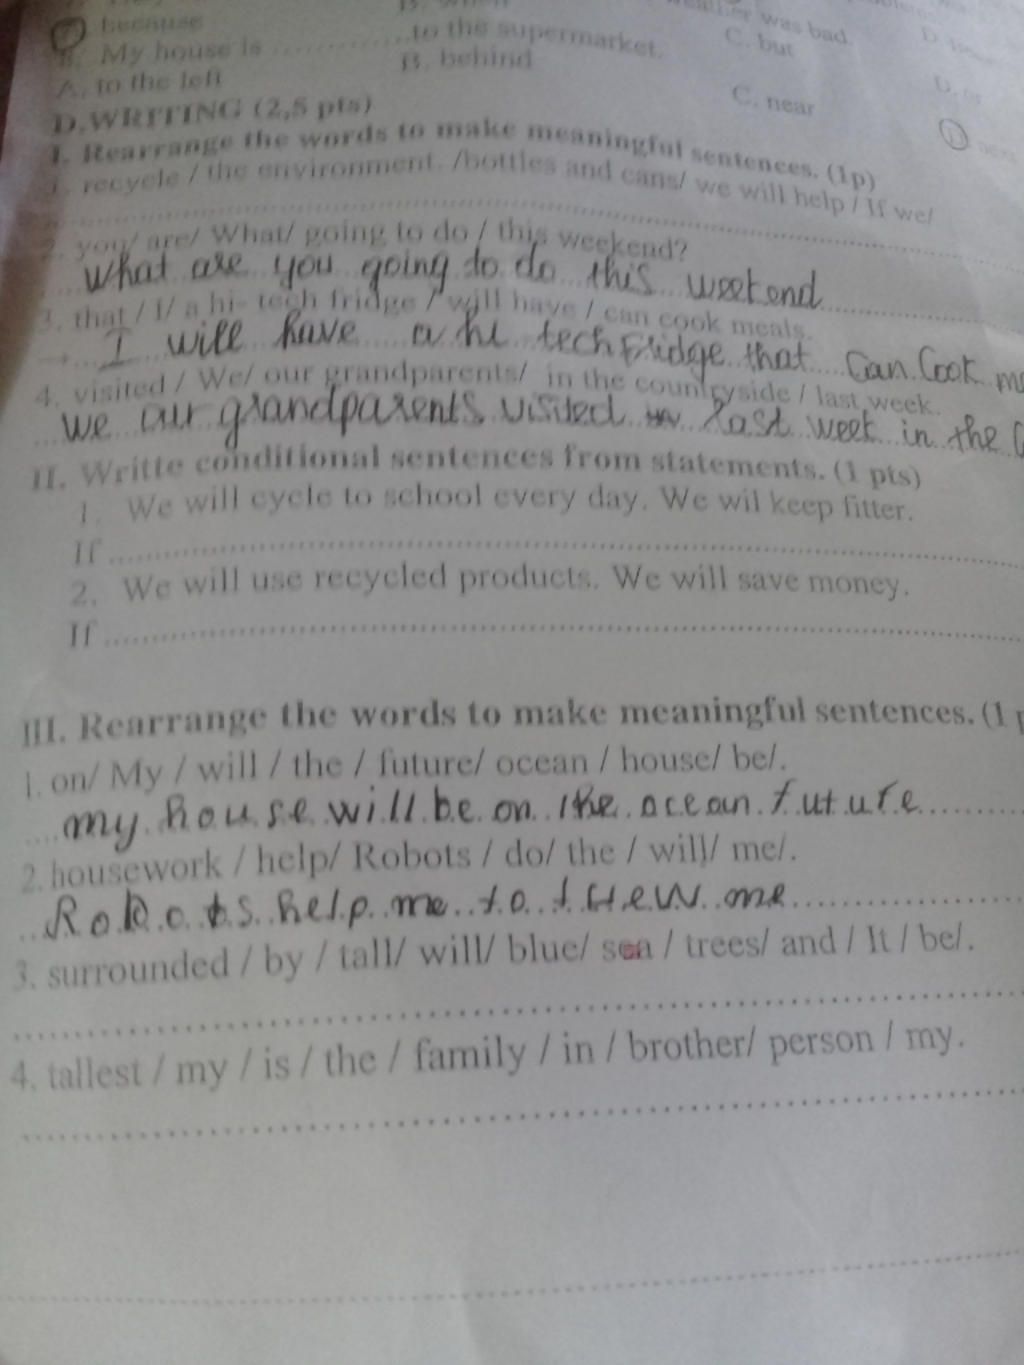 because
weather was bad.
B. My house is ..............to the supermarket.
C. but
A. to the left
B. behind
C. near
D. next
D.WRITING (2,5 pts)
I. Rearrange the words to make meaningful sentences. (1p)
1. recycle / the environment. /bottles and cans/ we will help / If we/
2. you/ are/ What/ going to do / this weekend?
What are you going to do this weekend
3. that / I/ a hi- tech fridge / will have / can cook meals.
→ I will have a hi tech fridge that can Cook
4. visited / We/ our grandparents/ in the countryside / last week.
we our grandparents visited last week in the
II. Writte conditional sentences from statements. (1 pts)
1. We will cycle to school every day. We wil keep fitter.
If
2. We will use recycled products. We will save money.
If
III. Rearrange the words to make meaningful sentences. (1
1. on/ My / will / the / future/ ocean / house/ be/.
my house will be on the ocean future
2. housework / help/ Robots / do/ the / will/ me/.
Robots help me to me
3. surrounded / by / tall/ will/ blue/ sea / trees/ and / It / be/.
4. tallest / my / is / the / family / in / brother/ person / my.